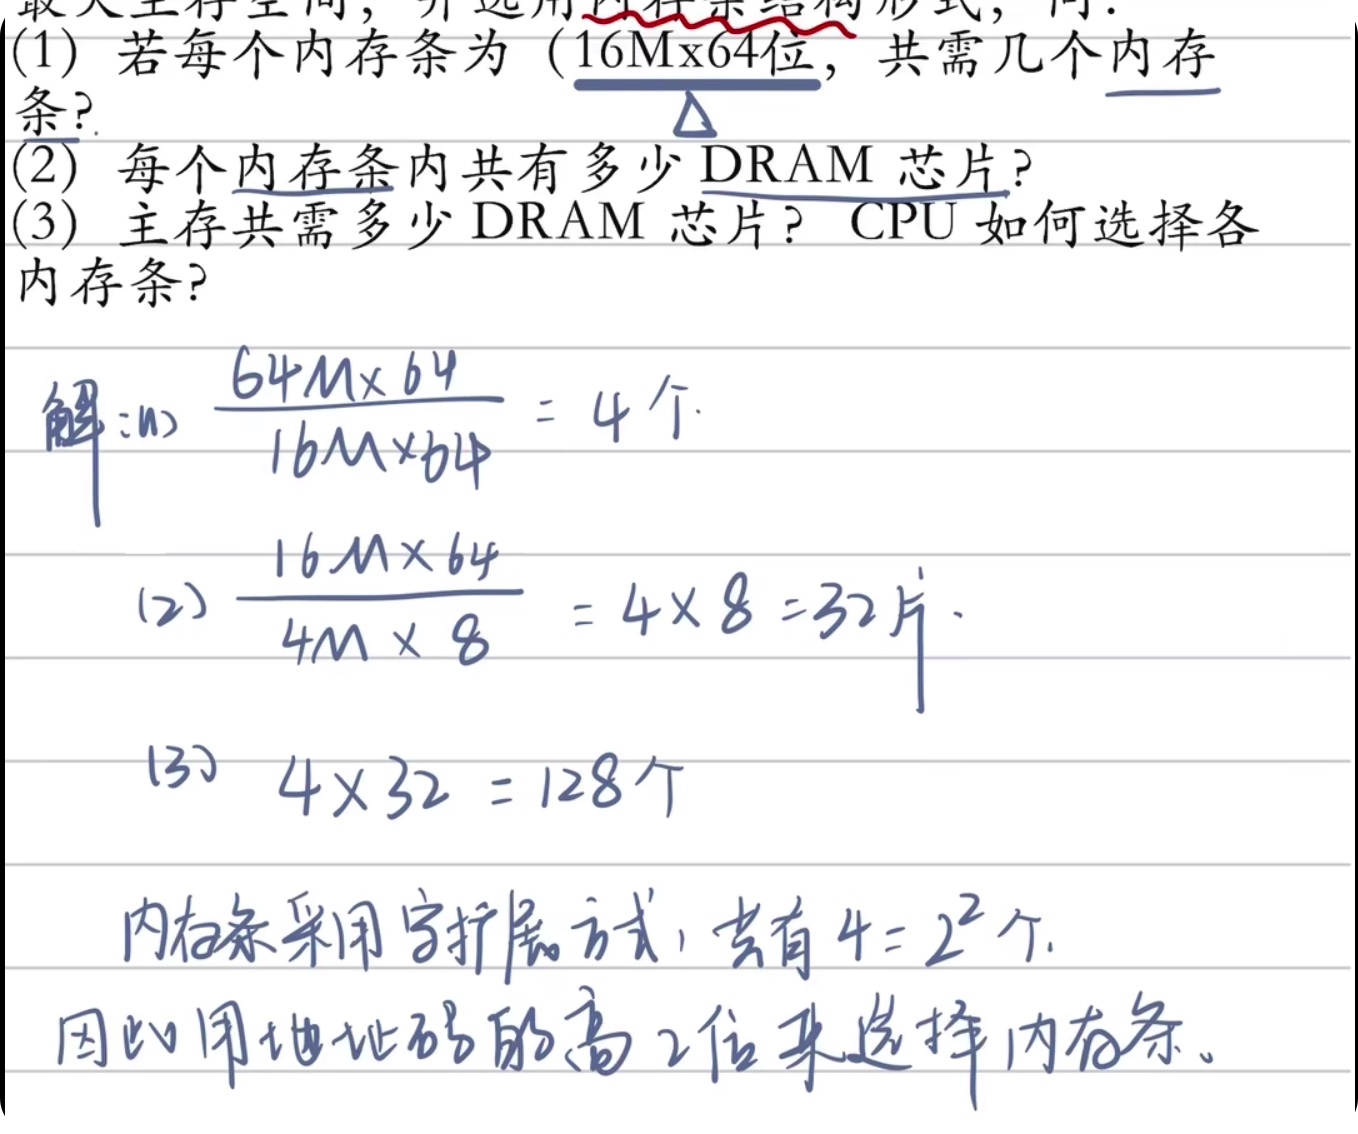 最大主存空间，并选用内存条结构形式，问：
(1) 若每个内存条为（16Mx64位，共需几个内存
条?
(2) 每个内存条内共有多少 DRAM 芯片?
(3) 主存共需多少 DRAM 芯片? CPU 如何选择各
内存条?
解:(1) 64M×64 / 16M×64 = 4个.
(2) 16M×64 / 4M×8 = 4×8=32片.
(3) 4×32=128个
内存条采用字扩展方式，共有4=2²个.
因此用地址码的高2位来选择内存条。